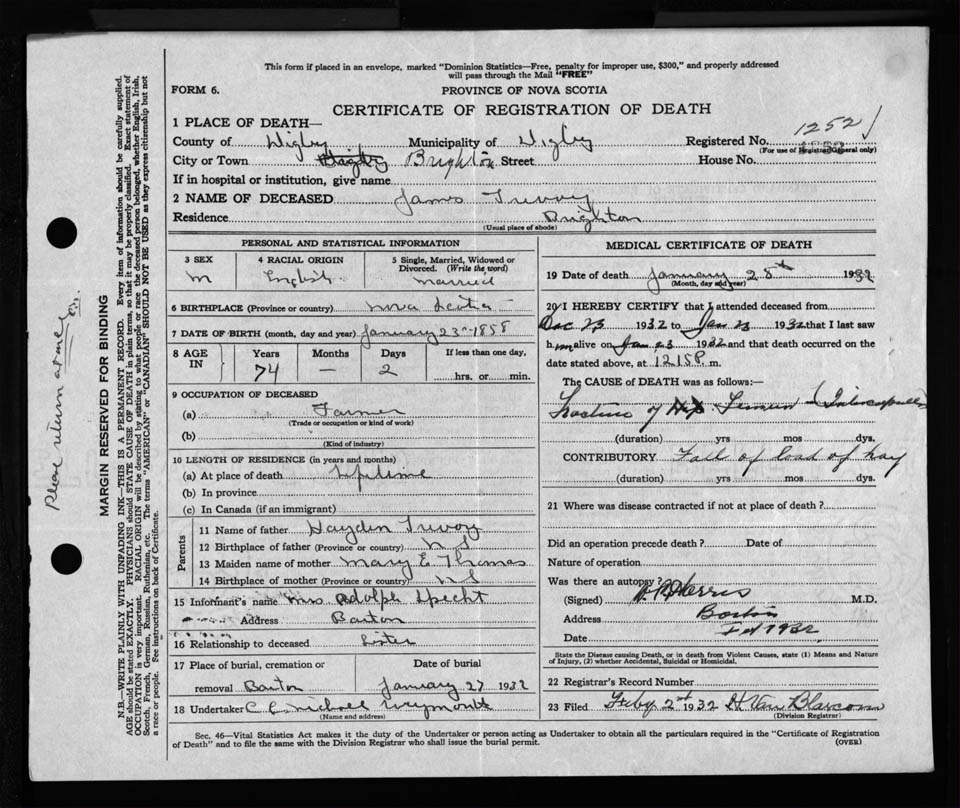 This form if placed in an envelope, marked "Dominion Statistics—Free, penalty for improper use, $300," and properly addressed
will pass through the Mail "FREE"
FORM 6.
PROVINCE OF NOVA SCOTIA
CERTIFICATE OF REGISTRATION OF DEATH
1 PLACE OF DEATH—
County of Digby Municipality of Digby Registered No. 1252
(For use of Registrar General only)
City or Town Digby Brighton Street House No.
If in hospital or institution, give name
2 NAME OF DECEASED James
Residence Brighton
(Usual place of abode)
PERSONAL AND STATISTICAL INFORMATION
3 SEX 4 RACIAL ORIGIN 5 Single, Married, Widowed or Divorced. (Write the word)
M English married
6 BIRTHPLACE (Province or country) nova Scotia
7 DATE OF BIRTH (month, day and year) January 23 1858
8 AGE IN Years Months Days If less than one day,
74 — 2 hrs. or min.
9 OCCUPATION OF DECEASED
(a) Farmer
(Trade or occupation or kind of work)
(b)
(Kind of industry)
10 LENGTH OF RESIDENCE (in years and months)
(a) At place of death lifetime
(b) In province
(c) In Canada (if an immigrant)
Parents
11 Name of father Hayden
12 Birthplace of father (Province or country) N S
13 Maiden name of mother Mary E Thomas
14 Birthplace of mother (Province or country) N S
15 Informant's name Mrs Adolph Specht
Address Barton
16 Relationship to deceased Sister
17 Place of burial, cremation or Date of burial
removal Barton January 27 1932
18 Undertaker Weymouth
(Name and address)
MEDICAL CERTIFICATE OF DEATH
19 Date of death January 25th 1932
(Month, day and year)
20 I HEREBY CERTIFY that I attended deceased from
Dec 23 1932 to Jan 23 1932 that I last saw
him alive on Jan 23 1932 and that death occurred on the
date stated above, at 12 15 P. m.
The CAUSE OF DEATH was as follows:—
Fracture of Hip Femur (Intracapsular)
(duration) yrs mos dys.
CONTRIBUTORY Fall of load of hay
(duration) yrs mos dys.
21 Where was disease contracted if not at place of death?
Did an operation precede death? Date of
Nature of operation
Was there an autopsy?
(Signed) Harris M.D.
Address Barton
Date Feb 1932
State the Disease causing Death, or in death from Violent Causes, state (1) Means and Nature
of Injury, (2) whether Accidental, Suicidal or Homicidal.
22 Registrar's Record Number
23 Filed Feby 2nd 1932 H Van Blarcom
(Division Registrar)
Sec. 46—Vital Statistics Act makes it the duty of the Undertaker or person acting as Undertaker to obtain all the particulars required in the "Certificate of Registration
of Death" and to file the same with the Division Registrar who shall issue the burial permit. (OVER)
Please return at once
MARGIN RESERVED FOR BINDING
N.B.—WRITE PLAINLY WITH UNFADING INK—THIS IS A PERMANENT RECORD. Every item of information should be carefully supplied.
AGE should be stated EXACTLY. PHYSICIANS should STATE CAUSE OF DEATH in plain terms, so that it may be properly classified. Exact statement of
OCCUPATION is very important. RACIAL ORIGIN will be described by stating to what people or race the deceased person belonged, whether English, Irish,
Scotch, French, German, Russian, Ruthenian, etc. The terms "AMERICAN" or "CANADIAN" SHOULD NOT BE USED as they express citizenship but not
a race or people. See instructions on back of Certificate.